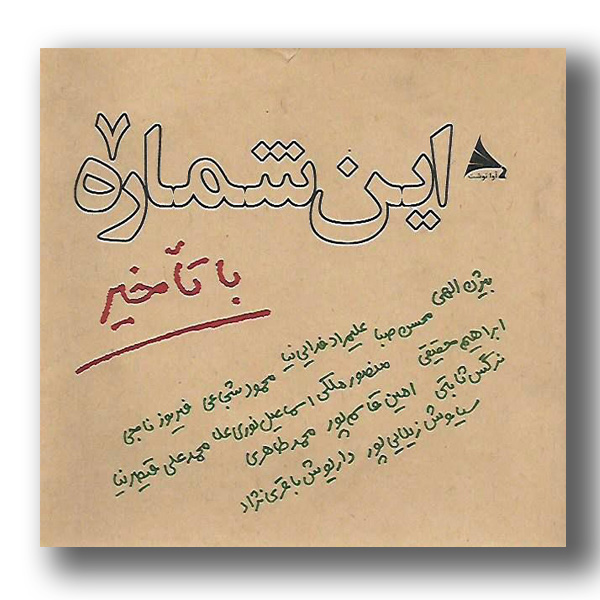 این شماره ۷
آوانوشت
با تأخیر
بیژن الهی محسن صبا علیمراد فدایی نیا محمود شجاعی فیروز ناجی
ابراهیم حقیقی منصور ملکی اسماعیل نوری علا محمدعلی قیصرنیا
نرگس ثابتی امین قاسم پور محمد طاهری
سیاوش زیلایی پور داریوش باقری نژاد